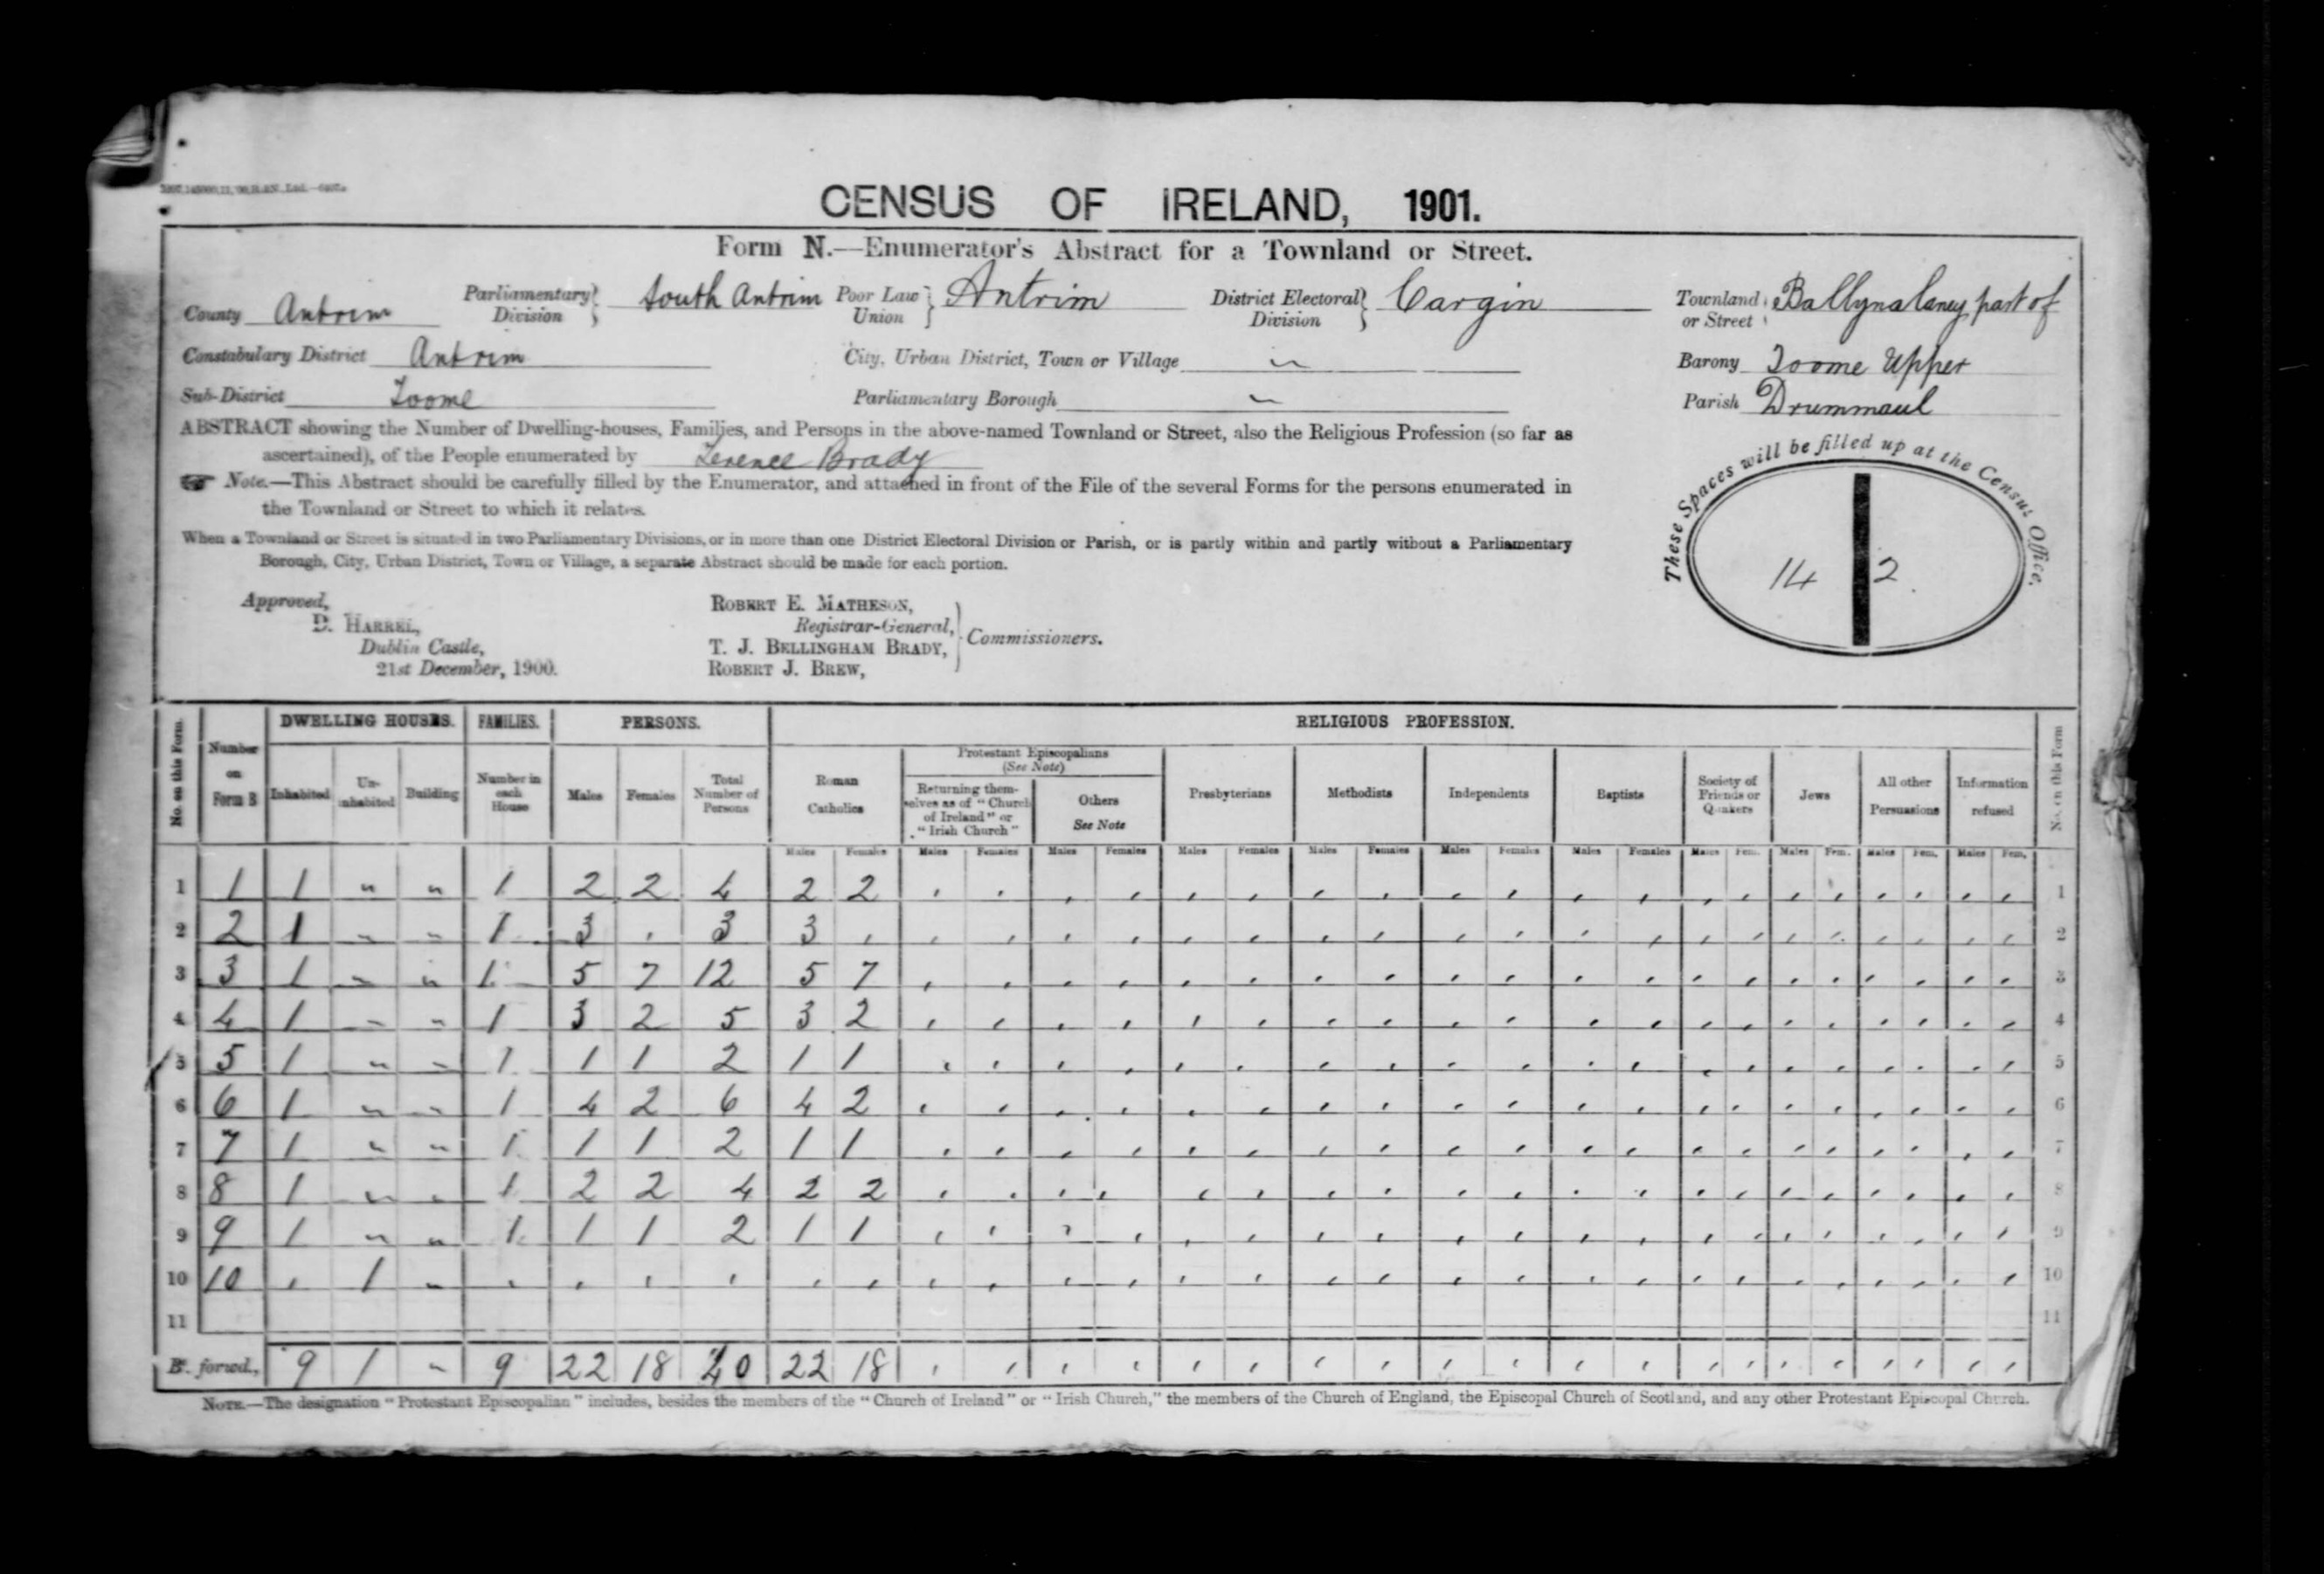 CENSUS OF IRELAND, 1901.
Form N.—Enumerator's Abstract for a Townland or Street.
County Antrim Parliamentary Division South Antrim Poor Law Union Antrim District Electoral Division Cargin Townland or Street Ballynalaney part of
Constabulary District Antrim City, Urban District, Town or Village " Barony Toome Upper
Sub-District Toome Parliamentary Borough " Parish Drummaul
ABSTRACT showing the Number of Dwelling-houses, Families, and Persons in the above-named Townland or Street, also the Religious Profession (so far as
ascertained), of the People enumerated by Terence Brady
Note.—This Abstract should be carefully filled by the Enumerator, and attached in front of the File of the several Forms for the persons enumerated in
the Townland or Street to which it relates.
When a Townland or Street is situated in two Parliamentary Divisions, or in more than one District Electoral Division or Parish, or is partly within and partly without a Parliamentary
Borough, City, Urban District, Town or Village, a separate Abstract should be made for each portion.
These Spaces will be filled up at the Census Office.
14 2
Approved,
D. HARREL,
Dublin Castle,
21st December, 1900.
ROBERT E. MATHESON,
Registrar-General,
T. J. BELLINGHAM BRADY,
ROBERT J. BREW,
Commissioners.
No. on this Form. Number on Form B DWELLING HOUSES. FAMILIES. PERSONS. RELIGIOUS PROFESSION. No. on this Form
Inhabited Un-inhabited Building Number in each House Males Females Total Number of Persons Roman Catholics Protestant Episcopalians (See Note) Returning themselves as of "Church of Ireland" or "Irish Church" Others See Note Presbyterians Methodists Independents Baptists Society of Friends or Quakers Jews All other Persuasions Information refused
Males Females Males Females Males Females Males Females Males Females Males Females Males Females Males Fem. Males Fem. Males Fem. Males Fem.
1 1 1 " " 1 2 2 4 2 2 1
2 2 1 " " 1 3 , 3 3 , 2
3 3 1 " " 1 5 7 12 5 7 3
4 4 1 " " 1 3 2 5 3 2 4
5 5 1 " " 1 1 1 2 1 1 5
6 6 1 " " 1 4 2 6 4 2 6
7 7 1 " " 1 1 1 2 1 1 7
8 8 1 " " 1 2 2 4 2 2 8
9 9 1 " " 1 1 1 2 1 1 9
10 10 , 1 " , , , , , , 10
11 11
Bt. forwd., 9 1 " 9 22 18 40 22 18
NOTE.—The designation "Protestant Episcopalian" includes, besides the members of the "Church of Ireland" or "Irish Church," the members of the Church of England, the Episcopal Church of Scotland, and any other Protestant Episcopal Church.